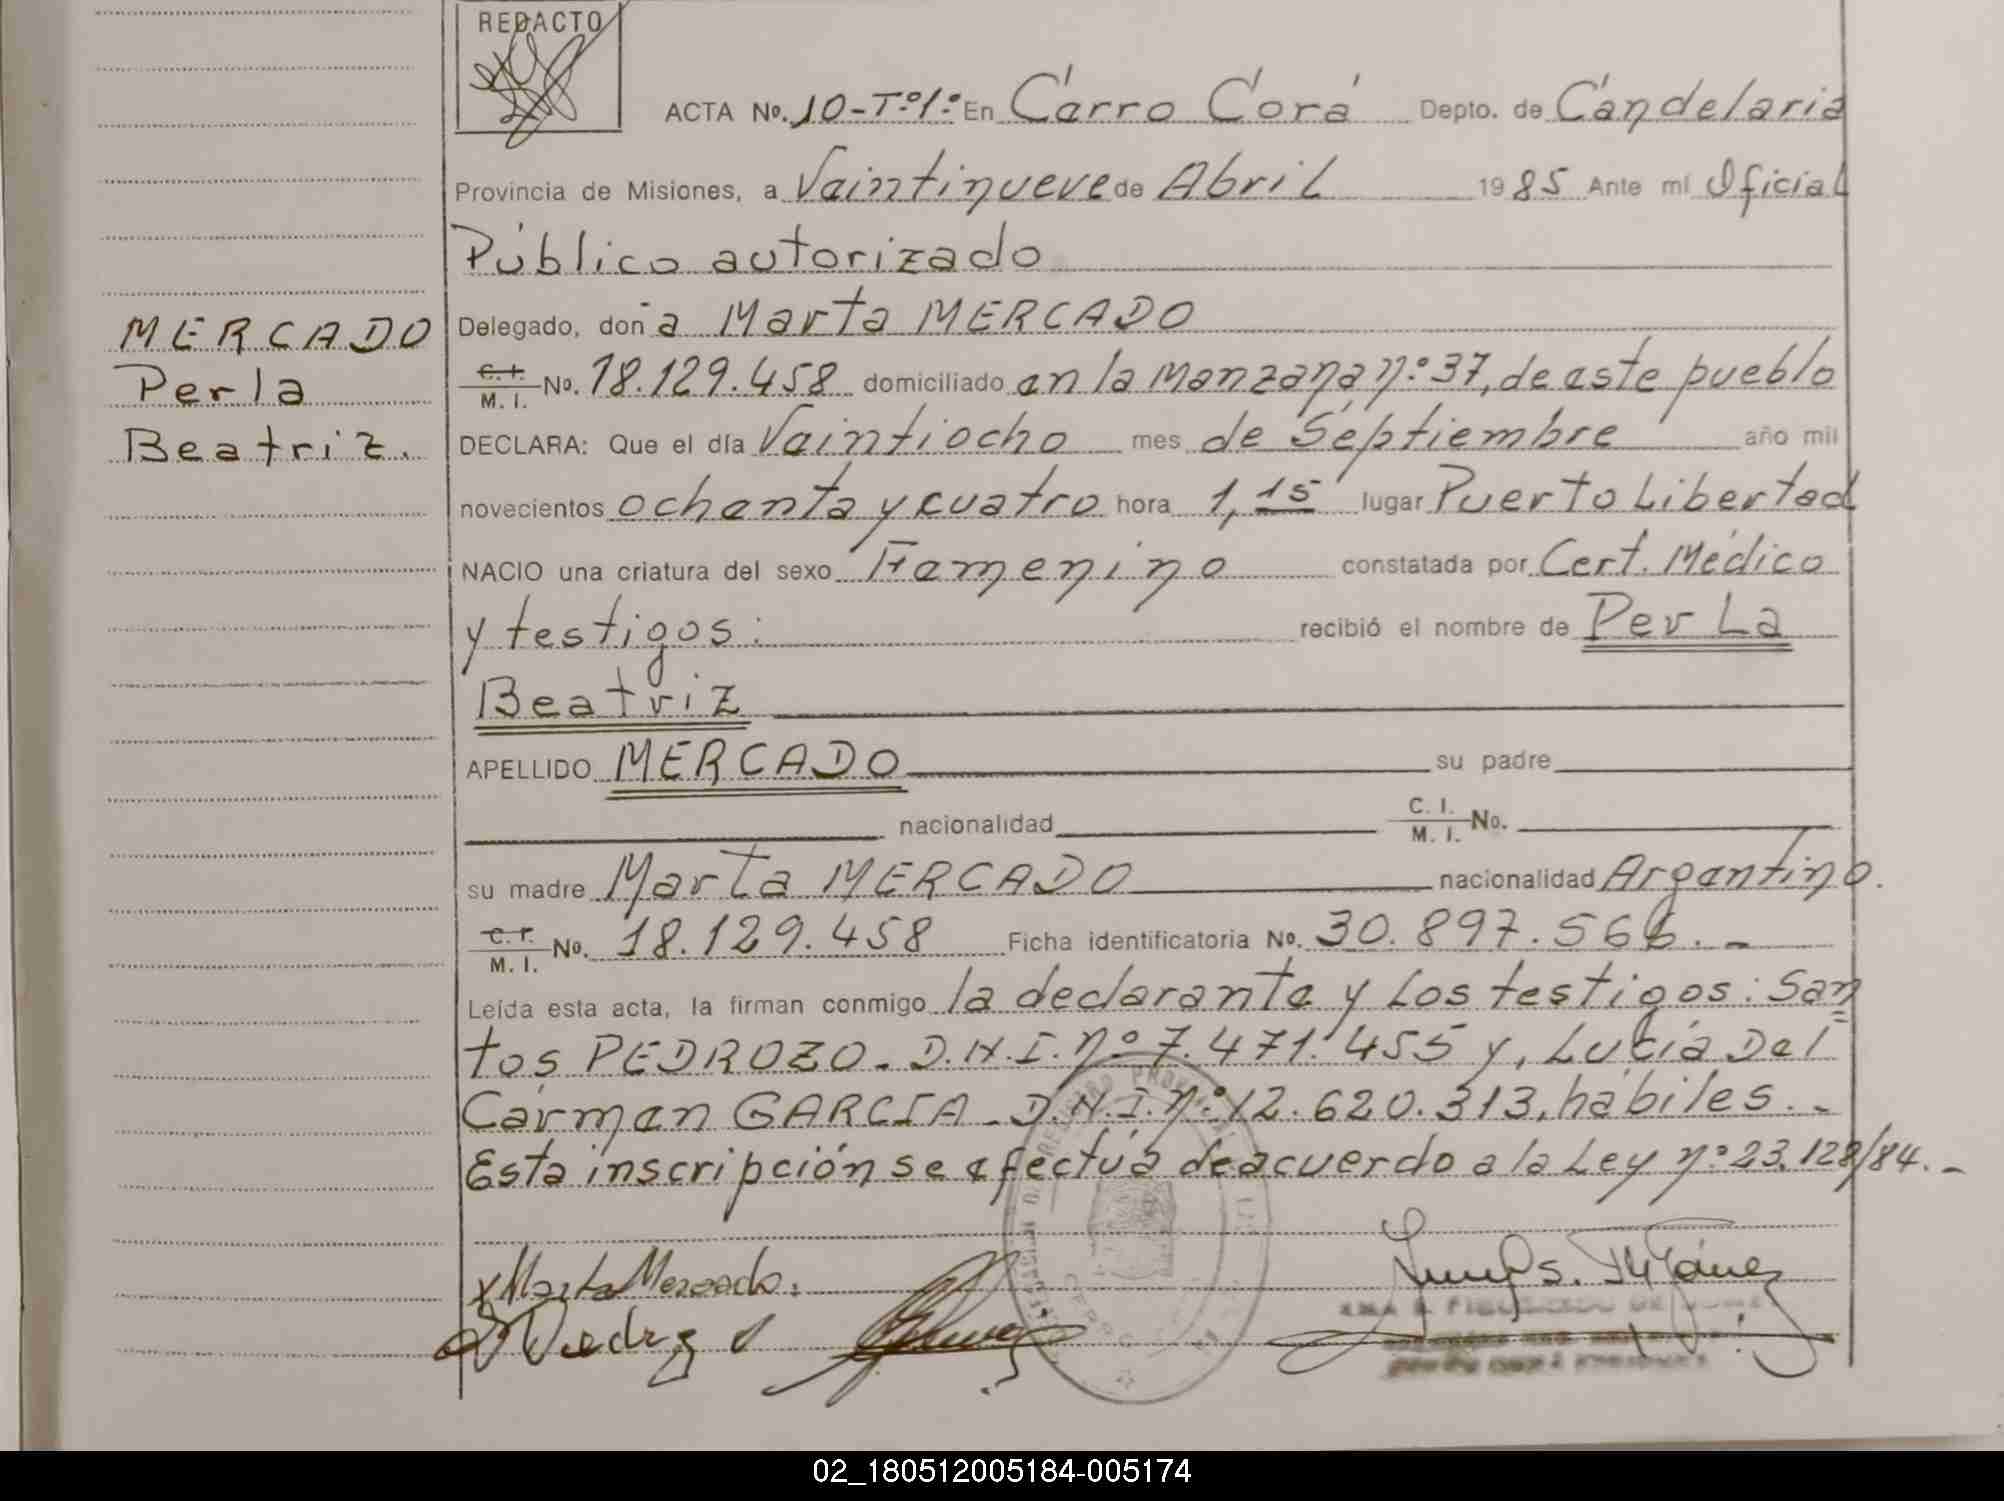 REDACTO
ACTA No. 10-Tº1º En Cerro Corá Depto. de Candelaria
Provincia de Misiones, a Veintinueve de Abril 1985 Ante mí Oficial
Público autorizado
MERCADO
Perla
Beatriz.
Delegado, don a Marta MERCADO
C. I. / M. I. No. 18.129.458 domiciliado en la Manzana nº 37, de este pueblo
DECLARA: Que el día Veintiocho mes de Septiembre año mil
novecientos ochenta y cuatro hora 1,15 lugar Puerto Libertad
NACIO una criatura del sexo Femenino constatada por Cert. Médico
y testigos: recibió el nombre de Perla
Beatriz
APELLIDO MERCADO su padre
nacionalidad C. I. / M. I. No.
su madre Marta MERCADO nacionalidad Argentino.
C. I. / M. I. No. 18.129.458 Ficha identificatoria No. 30.897.566.-
Leída esta acta, la firman conmigo la declarante y Los testigos: San
tos PEDROZO. D.N.I. nº 7.471.455 y, Lucía Del
Carmen GARCIA - D.N.I. nº 12.620.313, hábiles.-
Esta inscripción se efectúa de acuerdo a la Ley nº 23.128/84.-
x Marta Mercado.
02_180512005184-005174